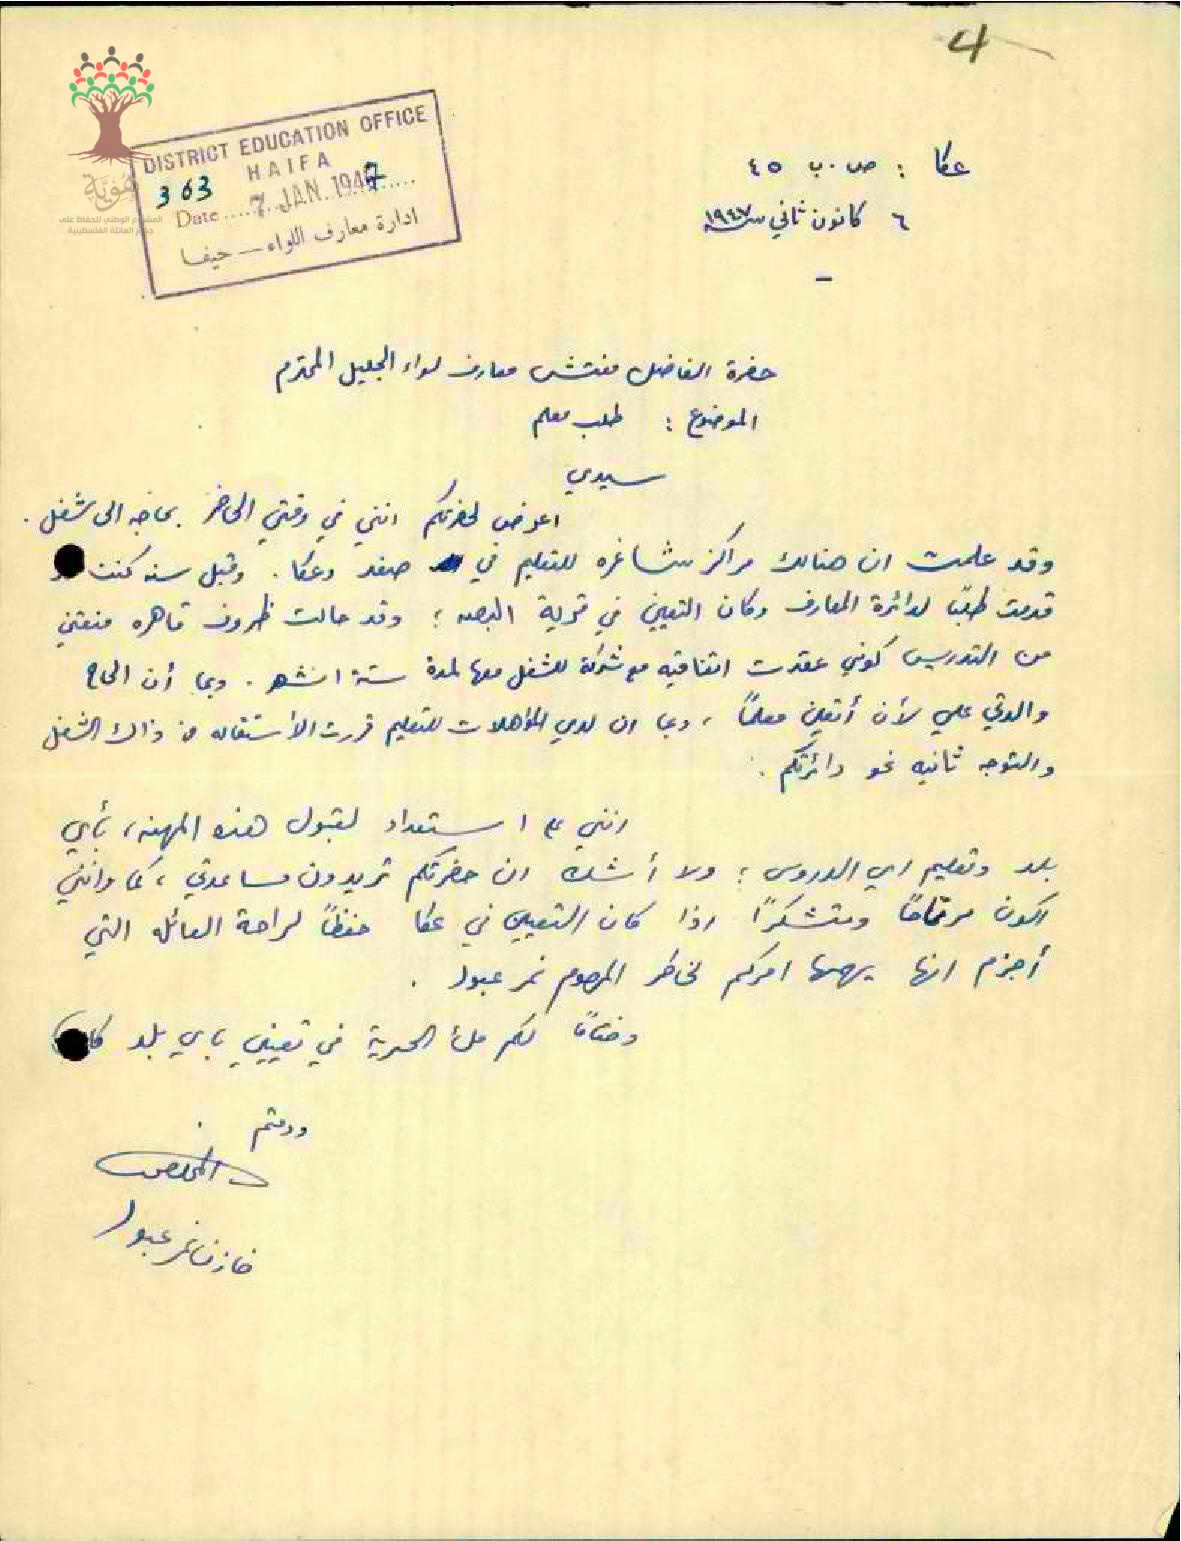 4
هوية
المشروع الوطني للحفاظ على
جذور العائلة الفلسطينية
DISTRICT EDUCATION OFFICE
HAIFA
363
Date 7 JAN. 1947
ادارة معارف اللواء — حيفا
عكا : ص.ب ٤٥
٦ كانون ثاني سنة ١٩٤٧
حضرة الفاضل مفتش معارف لواء الجليل المحترم
الموضوع : طلب معلم
سيدي
اعرض لحضرتكم انني في وقتي الحاضر بحاجه الى شغل .
وقد علمت ان هنالك مراكز شاغره للتعليم في صفد وعكا . وقبل سنه كنت
قدمت طلبًا لدائرة المعارف وكان التعيين في قرية البصه ؛ وقد حالت ظروف قاهره منعتني
من التدريس كوني عقدت اتفاقيه مع شركة للشغل معها لمدة ستة اشهر . وبما أن الحاح
والدتي علي لأن أتعين معلمًا ، وبما ان لدي المؤهلات للتعليم قررت الأستقاله من ذالك الشغل
والتوجه ثانيه نحو دائرتكم .
انني على استعداد لقبول هذه المهنه ، بأي
بلد وتعليم اي الدروس ؛ ولا أشك ان حضرتكم تريدون مساعدتي ، كما وانني
اكون مرتاحًا ومتشكرًا اذا كان التعيين في عكا حفظًا لراحة العائله التي
أجزم انها يهمها امركم لخاطر المرحوم نمر عبود .
وختامًا لكم ملئ الحرية في تعييني باي بلد
ودمتم
المخلص
نمر عبود